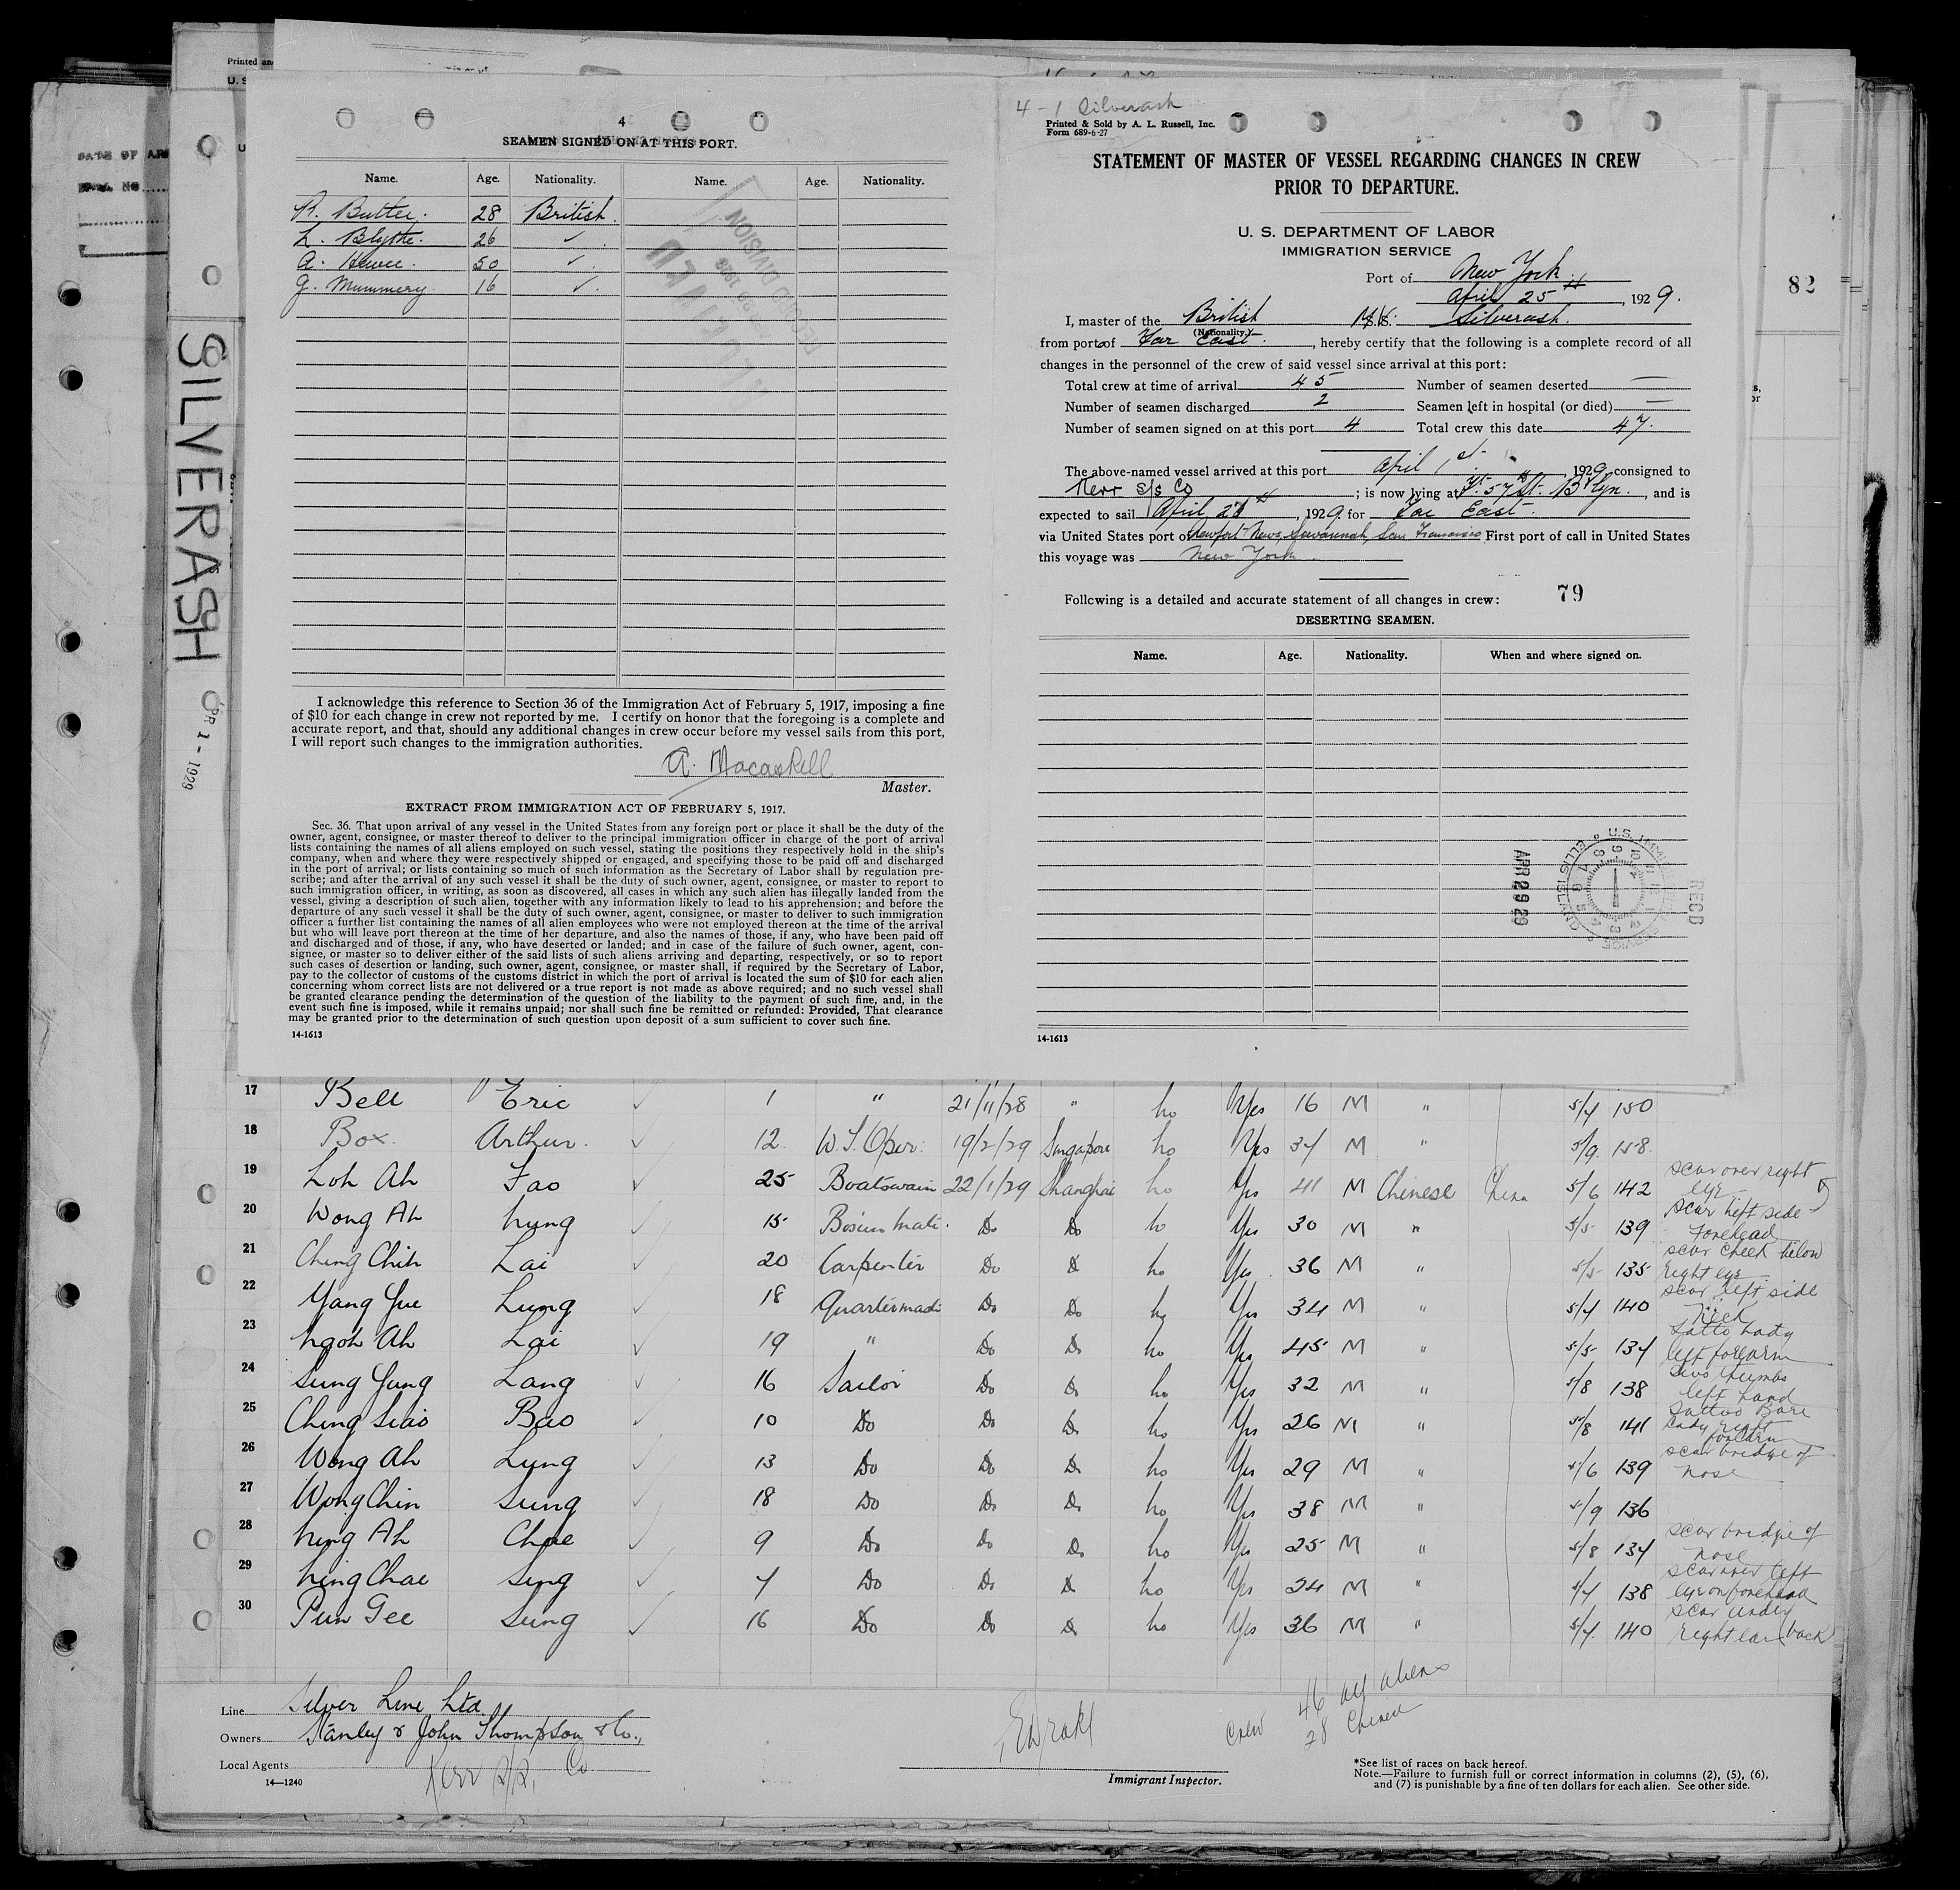 SILVERASH
APR 1 - 1929
Printed and
U. S
DATE OF AR
4
SEAMEN SIGNED ON AT THIS PORT.
Name. Age. Nationality. Name. Age. Nationality.
R. Butler. 28 British.
L. Blythe. 26 ✓
A. 50 ✓
G. Mummery. 16 ✓
RECORD DIVISION
I acknowledge this reference to Section 36 of the Immigration Act of February 5, 1917, imposing a fine
of $10 for each change in crew not reported by me. I certify on honor that the foregoing is a complete and
accurate report, and that, should any additional changes in crew occur before my vessel sails from this port,
I will report such changes to the immigration authorities.
A. Macaskell
Master.
EXTRACT FROM IMMIGRATION ACT OF FEBRUARY 5, 1917.
Sec. 36. That upon arrival of any vessel in the United States from any foreign port or place it shall be the duty of the
owner, agent, consignee, or master thereof to deliver to the principal immigration officer in charge of the port of arrival
lists containing the names of all aliens employed on such vessel, stating the positions they respectively hold in the ship's
company, when and where they were respectively shipped or engaged, and specifying those to be paid off and discharged
in the port of arrival; or lists containing so much of such information as the Secretary of Labor shall by regulation pre-
scribe; and after the arrival of any such vessel it shall be the duty of such owner, agent, consignee, or master to report to
such immigration officer, in writing, as soon as discovered, all cases in which any such alien has illegally landed from the
vessel, giving a description of such alien, together with any information likely to lead to his apprehension; and before the
departure of any such vessel it shall be the duty of such owner, agent, consignee, or master to deliver to such immigration
officer a further list containing the names of all alien employees who were not employed thereon at the time of the arrival
but who will leave port thereon at the time of her departure, and also the names of those, if any, who have been paid off
and discharged and of those, if any, who have deserted or landed; and in case of the failure of such owner, agent, con-
signee, or master so to deliver either of the said lists of such aliens arriving and departing, respectively, or so to report
such cases of desertion or landing, such owner, agent, consignee, or master shall, if required by the Secretary of Labor,
pay to the collector of customs of the customs district in which the port of arrival is located the sum of $10 for each alien
concerning whom correct lists are not delivered or a true report is not made as above required; and no such vessel shall
be granted clearance pending the determination of the question of the liability to the payment of such fine, and, in the
event such fine is imposed, while it remains unpaid; nor shall such fine be remitted or refunded: Provided, That clearance
may be granted prior to the determination of such question upon deposit of a sum sufficient to cover such fine.
14-1613
4 - 1 Silverash
Printed & Sold by A. L. Russell, Inc.
Form 689-6-27
STATEMENT OF MASTER OF VESSEL REGARDING CHANGES IN CREW
PRIOR TO DEPARTURE.
U. S. DEPARTMENT OF LABOR
IMMIGRATION SERVICE
Port of New York
April 25th, 1929.
I, master of the British M.S. Silverash.
(Nationality.)
from port of Far East, hereby certify that the following is a complete record of all
changes in the personnel of the crew of said vessel since arrival at this port:
Total crew at time of arrival 45 Number of seamen deserted —
Number of seamen discharged 2 Seamen left in hospital (or died) —
Number of seamen signed on at this port 4 Total crew this date 47.
The above-named vessel arrived at this port April 1st, 1929, consigned to
Kerr S/S Co; is now lying at Ft. 57th St. B'klyn., and is
expected to sail April 26th, 1929, for Far East
via United States port of Newport News, Savannah, San Francisco First port of call in United States
this voyage was New York
Following is a detailed and accurate statement of all changes in crew: 79
DESERTING SEAMEN.
Name. Age. Nationality. When and where signed on.
APR 29 29
U.S. IMMIGRATION SERVICE ELLIS ISLAND
REC'D
14-1613
82
17 Bell Eric ✓ 1 " 21/11/28 " no Yes 16 M " 5/4 150
18 Box. Arthur. ✓ 12 W.T. Oper. 19/2/29 Singapore no Yes 34 M " 5/9. 158.
19 Loh Ah Fao ✓ 25 Boatswain 22/1/29 Shanghai no Yes 41 M Chinese China 5/6 142 scar over right eye
20 Wong Ah hung ✓ 15 Bosun Mate. Do Do no Yes 30 M " 5/5 139 scar left side Forehead
21 Ching Chih Lai ✓ 20 Carpenter Do Do no Yes 36 M " 5/5 135 scar cheek below right eye
22 Yang Yue Lung ✓ 18 Quartermaster Do Do no Yes 34 M " 5/4 140 scar left side Neck
23 Ngoh Ah Lai ✓ 19 " Do Do no Yes 45 M " 5/5 134 Tatto Lady left forearm
24 Sung Yung Lang ✓ 16 Sailor Do Do no Yes 32 M " 5/8 138 Two thumbs left hand
25 Ching Siao Bao ✓ 10 Do Do Do no Yes 26 M " 5/8 141 Tattoo Bare Lady right forearm
26 Wong Ah Lung ✓ 13 Do Do Do no Yes 29 M " 5/6 139 scar bridge of nose
27 Wong Chin Sung ✓ 18 Do Do Do no Yes 38 M " 5/9 136
28 Ning Ah Choe ✓ 9 Do Do Do no Yes 25 M " 5/8 134 scar bridge of nose
29 Ning Chae Sing ✓ 4 Do Do Do no Yes 24 M " 5/4 138 scar over left eye on forehead
30 Pun Gee Sung ✓ 16 Do Do Do no Yes 36 M " 5/4. 140 scar under right ear (back)
Line Silver Line Ltd
Owners Stanley & John Thompson & Co.,
Local Agents Kerr S/S. Co
14—1240
Immigrant Inspector.
Crew 46 all aliens
28 Chinese
*See list of races on back hereof.
Note.—Failure to furnish full or correct information in columns (2), (5), (6),
and (7) is punishable by a fine of ten dollars for each alien. See other side.